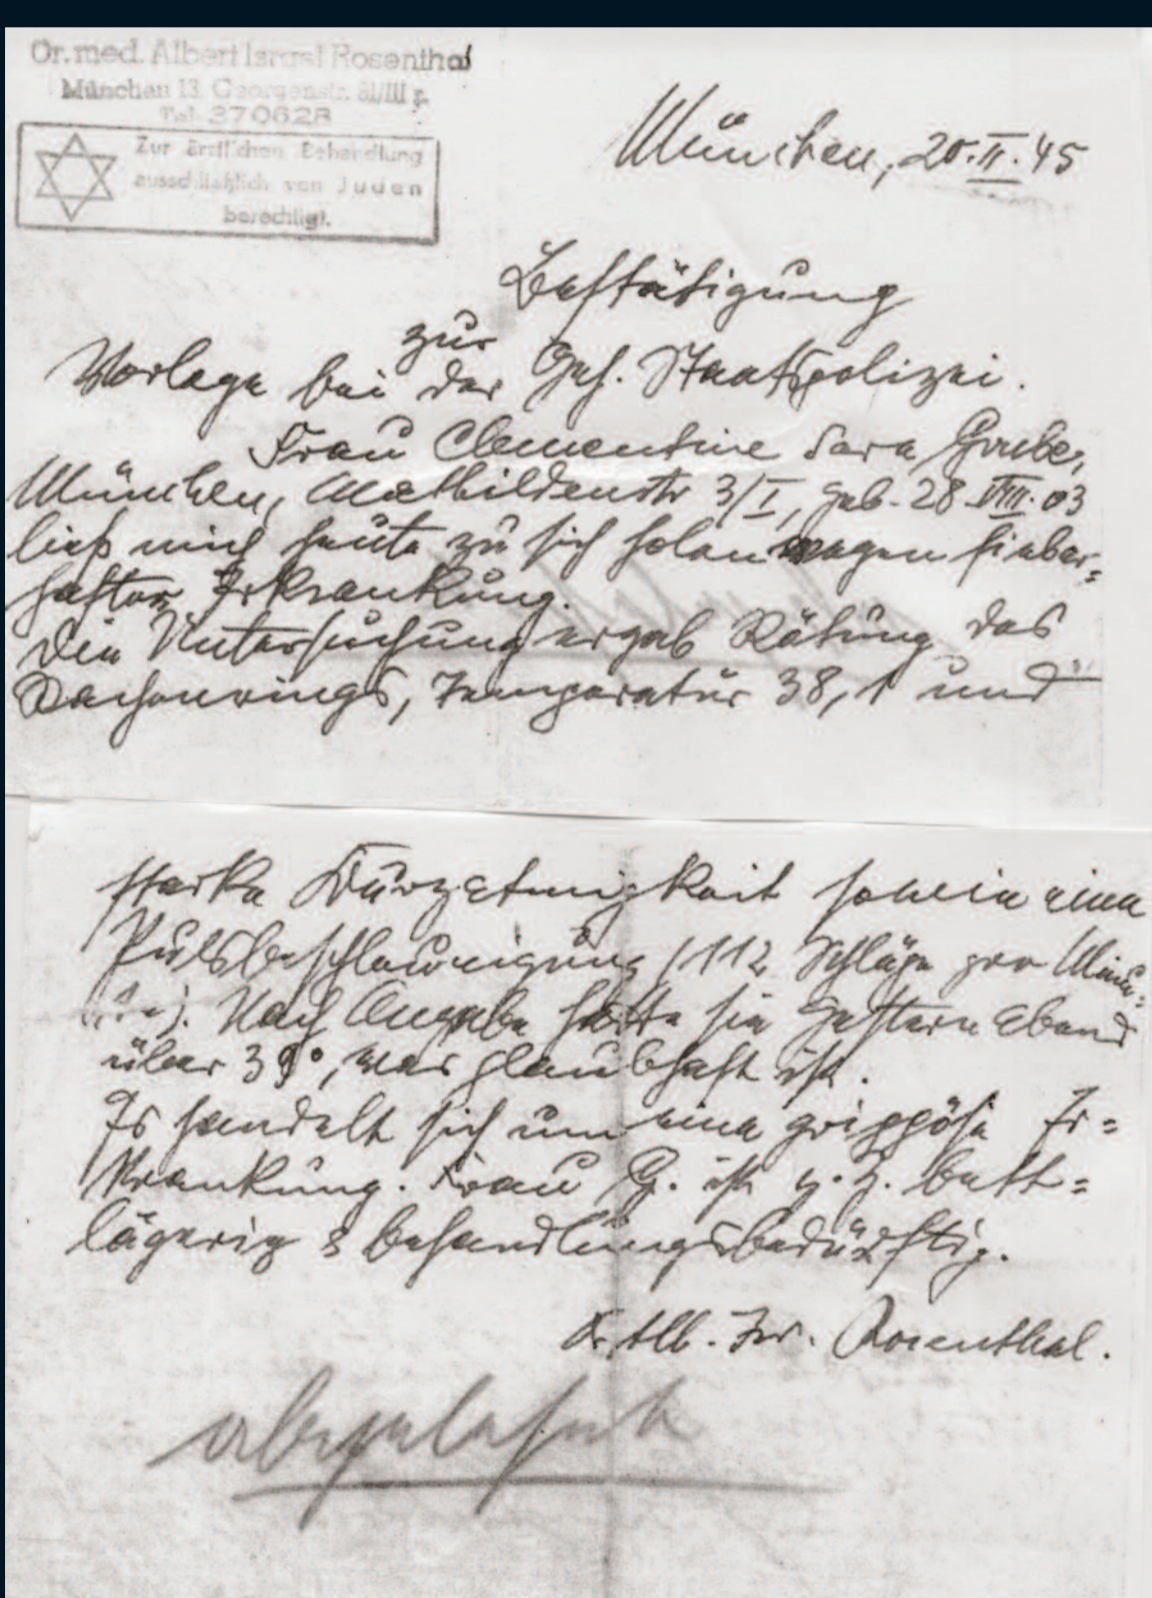 Dr. med. Albert Israel Rosenthal
München 13. Georgenstr. 81/III r.
Tel. 370628
Zur ärztlichen Behandlung
ausschließlich von Juden
berechtigt.
München, 20.II.45
Bestätigung
zur
Vorlage bei der Geh. Staatspolizei.
Frau Clementine Sara Grube,
München, Mathildenstr 3/I, geb. 28.VIII.03
ließ mich heute zu sich holen wegen fieber=
hafter Erkrankung.
Die Untersuchung ergab Rötung des
Rachenrings, Temperatur 38,1 und
starke Kurzatmigkeit sowie eine
Pulsbeschleunigung (112 Schläge pro Minu=
te). Nach Angabe hatte sie gestern abend
über 39°, was glaubhaft ist.
Es handelt sich um eine grippöse Er=
krankung. Frau G. ist z. Z. bett=
lägerig & behandlungsbedürftig.
Dr. Alb. Isr. Rosenthal.
abgelehnt